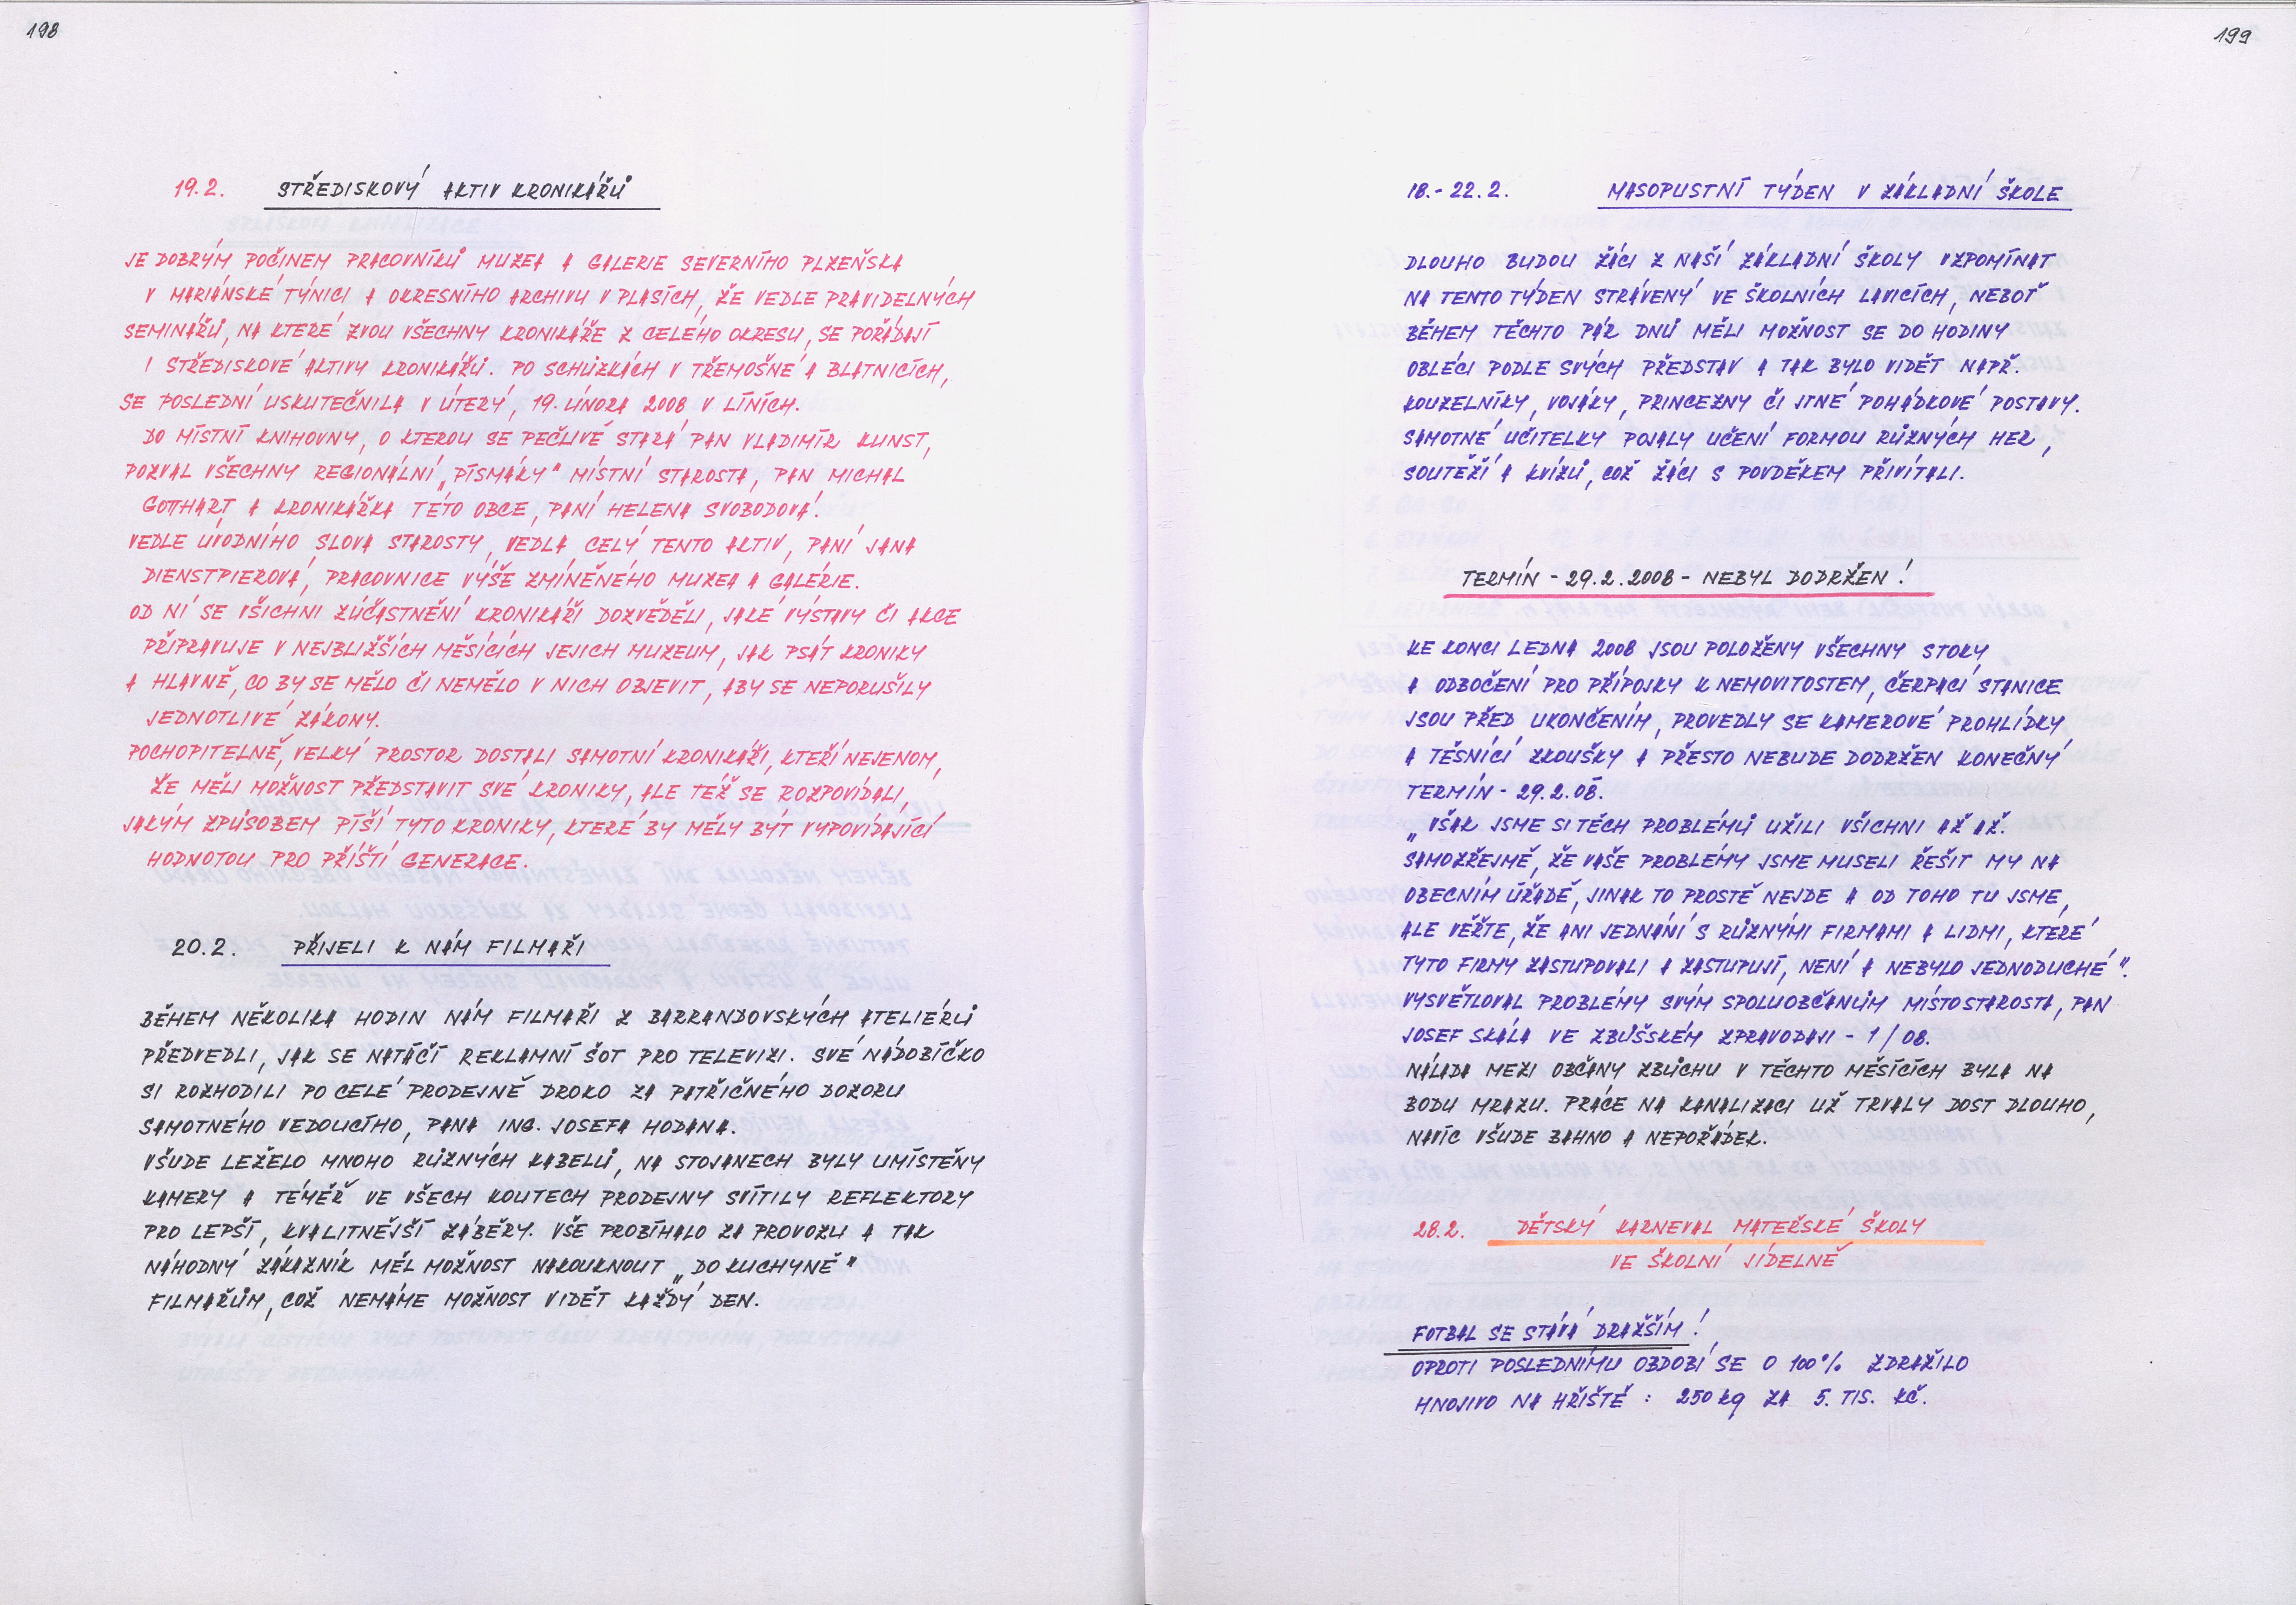 198
19.2. STŘEDISKOVÝ AKTIV KRONIKÁŘŮ
JE DOBRÝM POČINEM PRACOVNÍKŮ MUZEA A GALERIE SEVERNÍHO PLZEŇSKA
V MARIÁNSKÉ TÝNICI A OKRESNÍHO ARCHIVU V PLASÍCH, ŽE VEDLE PRAVIDELNÝCH
SEMINÁŘŮ, NA KTERÉ ZVOU VŠECHNY KRONIKÁŘE Z CELÉHO OKRESU, SE POŘÁDAJÍ
I STŘEDISKOVÉ AKTIVY KRONIKÁŘŮ. PO SCHŮZKÁCH V TŘEMOŠNÉ A BLATNICÍCH,
SE POSLEDNÍ USKUTEČNILA V ÚTERÝ, 19. ÚNORA 2008 V LÍNÍCH.
DO MÍSTNÍ KNIHOVNY, O KTEROU SE PEČLIVĚ STARÁ PAN VLADIMÍR KUNST,
POZVAL VŠECHNY REGIONÁLNÍ „PÍSMÁKY" MÍSTNÍ STAROSTA, PAN MICHAL
GOTTHART A KRONIKÁŘKA TÉTO OBCE, PANÍ HELENA SVOBODOVÁ.
VEDLE ÚVODNÍHO SLOVA STAROSTY, VEDLA CELÝ TENTO AKTIV, PANÍ JANA
DIENSTPIEROVÁ, PRACOVNICE VÝŠE ZMÍNĚNÉHO MUZEA A GALÉRIE.
OD NÍ SE VŠICHNI ZÚČASTNĚNÍ KRONIKÁŘI DOZVĚDĚLI, JAKÉ VÝSTAVY ČI AKCE
PŘIPRAVUJE V NEJBLIŽŠÍCH MĚSÍCÍCH JEJICH MUZEUM, JAK PSÁT KRONIKY
A HLAVNĚ, CO BY SE MĚLO ČI NEMĚLO V NICH OBJEVIT, ABY SE NEPORUŠILY
JEDNOTLIVÉ ZÁKONY.
POCHOPITELNĚ, VELKÝ PROSTOR DOSTALI SAMOTNÍ KRONIKÁŘI, KTEŘÍ NEJENOM,
ŽE MĚLI MOŽNOST PŘEDSTAVIT SVÉ KRONIKY, ALE TÉŽ SE ROZPOVÍDALI,
JAKÝM ZPŮSOBEM PÍŠÍ TYTO KRONIKY, KTERÉ BY MĚLY BÝT VYPOVÍDAJÍCÍ
HODNOTOU PRO PŘÍŠTÍ GENERACE.
20.2. PŘIJELI K NÁM FILMAŘI
BĚHEM NĚKOLIKA HODIN NÁM FILMAŘI Z BARRANDOVSKÝCH ATELIÉRŮ
PŘEDVEDLI, JAK SE NATÁČÍ REKLAMNÍ ŠOT PRO TELEVIZI. SVÉ NÁDOBÍČKO
SI ROZHODILI PO CELÉ PRODEJNĚ DROKO ZA PATŘIČNÉHO DOZORU
SAMOTNÉHO VEDOUCÍHO, PANA ING. JOSEFA HODANA.
VŠUDE LEŽELO MNOHO RŮZNÝCH KABELŮ, NA STOJANECH BYLY UMÍSTĚNY
KAMERY A TÉMĚŘ VE VŠECH KOUTECH PRODEJNY SVÍTILY REFLEKTORY
PRO LEPŠÍ, KVALITNĚJŠÍ ZÁBĚRY. VŠE PROBÍHALO ZA PROVOZU A TAK
NÁHODNÝ ZÁKAZNÍK MĚL MOŽNOST NAKOUKNOUT „DO KUCHYNĚ"
FILMAŘŮM, COŽ NEMÁME MOŽNOST VIDĚT KAŽDÝ DEN.
199
18.-22.2. MASOPUSTNÍ TÝDEN V ZÁKLADNÍ ŠKOLE
DLOUHO BUDOU ŽÁCI Z NAŠÍ ZÁKLADNÍ ŠKOLY VZPOMÍNAT
NA TENTO TÝDEN STRÁVENÝ VE ŠKOLNÍCH LAVICÍCH, NEBOŤ
BĚHEM TĚCHTO PÁR DNŮ MĚLI MOŽNOST SE DO HODINY
OBLÉCI PODLE SVÝCH PŘEDSTAV A TAK BYLO VIDĚT NAPŘ.
KOUZELNÍKY, VOJÁKY, PRINCEZNY ČI JINÉ POHÁDKOVÉ POSTAVY.
SAMOTNÉ UČITELKY POJALY UČENÍ FORMOU RŮZNÝCH HER,
SOUTĚŽÍ A KVÍZŮ, COŽ ŽÁCI S POVDĚKEM PŘIVÍTALI.
TERMÍN - 29.2.2008 - NEBYL DODRŽEN!
KE KONCI LEDNA 2008 JSOU POLOŽENY VŠECHNY STOKY
A ODBOČENÍ PRO PŘÍPOJKY K NEMOVITOSTEM, ČERPACÍ STANICE
JSOU PŘED UKONČENÍM, PROVEDLY SE KAMEROVÉ PROHLÍDKY
A TĚSNÍCÍ ZKOUŠKY A PŘESTO NEBUDE DODRŽEN KONEČNÝ
TERMÍN - 29.2.08.
„VŠAK JSME SI TĚCH PROBLÉMŮ UŽILI VŠICHNI AŽ AŽ.
SAMOZŘEJMĚ, ŽE VAŠE PROBLÉMY JSME MUSELI ŘEŠIT MY NA
OBECNÍM ÚŘADĚ, JINAK TO PROSTĚ NEJDE A OD TOHO TU JSME,
ALE VĚŘTE, ŽE ANI JEDNÁNÍ S RŮZNÝMI FIRMAMI A LIDMI, KTERÉ
TYTO FIRMY ZASTUPOVALI A ZASTUPUJÍ, NENÍ A NEBYLO JEDNODUCHÉ".
VYSVĚTLOVAL PROBLÉMY SVÝM SPOLUOBČANŮM MÍSTOSTAROSTA, PAN
JOSEF SKÁLA VE ZBŮŠSKÉM ZPRAVODAJI - 1/08.
NÁLADA MEZI OBČANY ZBŮCHU V TĚCHTO MĚSÍCÍCH BYLA NA
BODU MRAZU. PRÁCE NA KANALIZACI UŽ TRVALY DOST DLOUHO,
NAVÍC VŠUDE BAHNO A NEPOŘÁDEK.
28.2. DĚTSKÝ KARNEVAL MATEŘSKÉ ŠKOLY
VE ŠKOLNÍ JÍDELNĚ
FOTBAL SE STÁVÁ DRAŽŠÍM!
OPROTI POSLEDNÍMU OBDOBÍ SE O 100% ZDRAŽILO
HNOJIVO NA HŘIŠTĚ : 250 kg ZA 5. TIS. KČ.